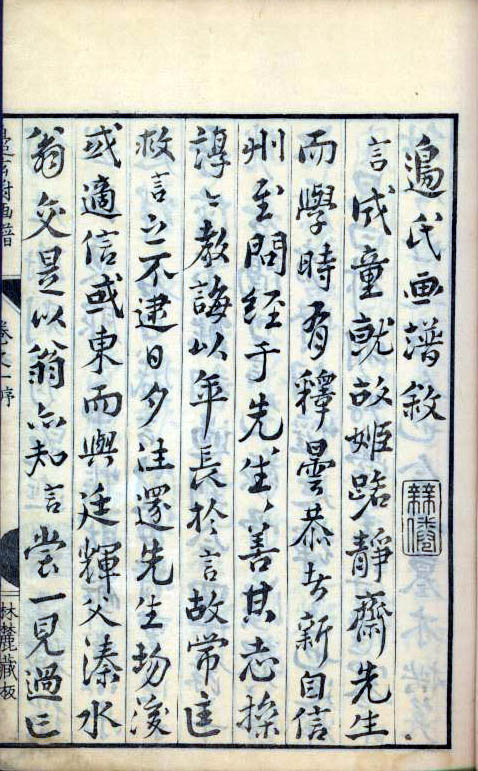 邉氏画譜敘
言成童就故姬路靜齋先生
而學時有釋曇恭者新自信
州至問經于先生〻善其志操
諄〻教誨以年長於言故常匡
救言之不逮日夕往還先生歾後
或適信或東而與廷輝父溱水
翁交是以翁亦知言嘗一見過
画譜
卷之一序
林麓藏板